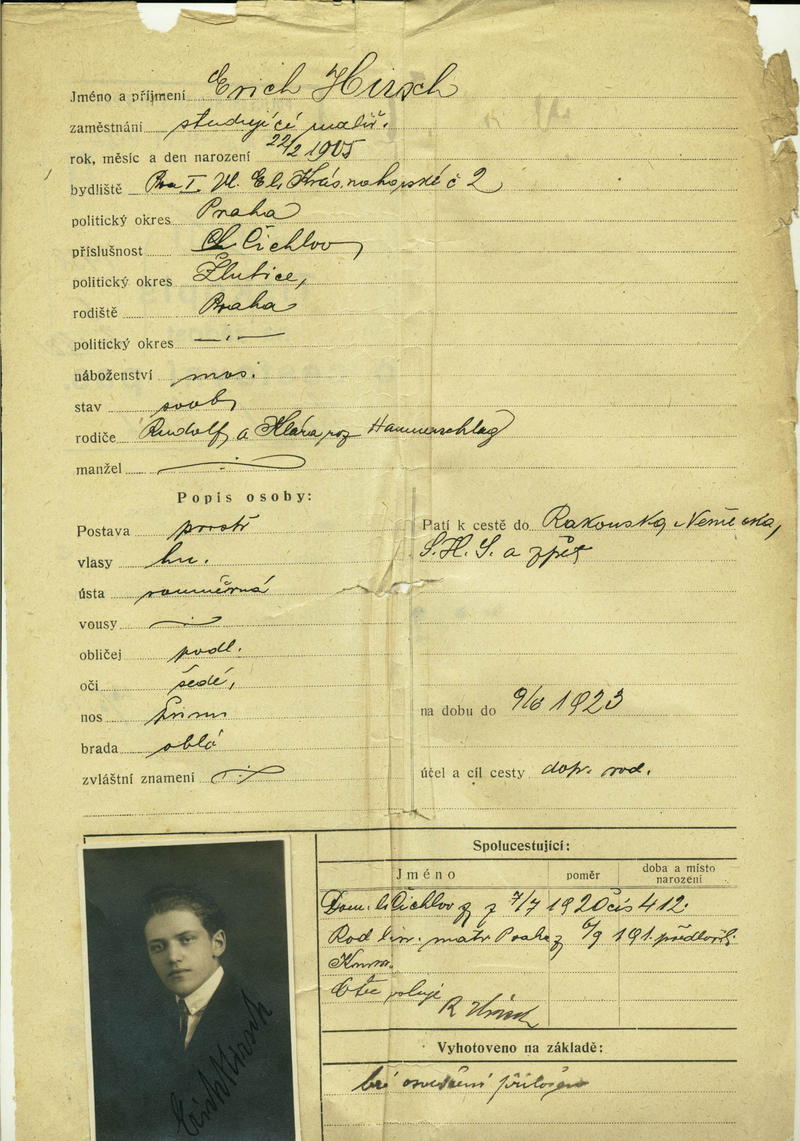 Jméno a příjmení Erich Hirsch
zaměstnání studující malíř.
rok, měsíc a den narození 22/2 1905
bydliště Pra I. Ul. El. Krásnohorské č 2
politický okres Praha
příslušnost Čichlov
politický okres Žlutice,
rodiště Praha
politický okres —·—
náboženství mos.
stav svob
rodiče Rudolf a Klára roz Hammerschlag
manžel
Popis osoby:
Postava prostř
vlasy hn.
ústa souměrná
vousy
obličej podl.
oči šedé,
nos
brada oblá
zvláštní znamení
Patí k cestě do Rakouska, Německa,
S.H.S. a zpět
na dobu do 9/6 1923
účel a cíl cesty dopr. rod.
Spolucestující:
Jméno poměr doba a místo narození
Dom. l. Čichlov z 7/7 1920 čís 412.
Rod matr Praha z 6/9 191. předložil
Otec
R Hirsch
Vyhotoveno na základě:
osvědčení přiložen
Erich Hirsch